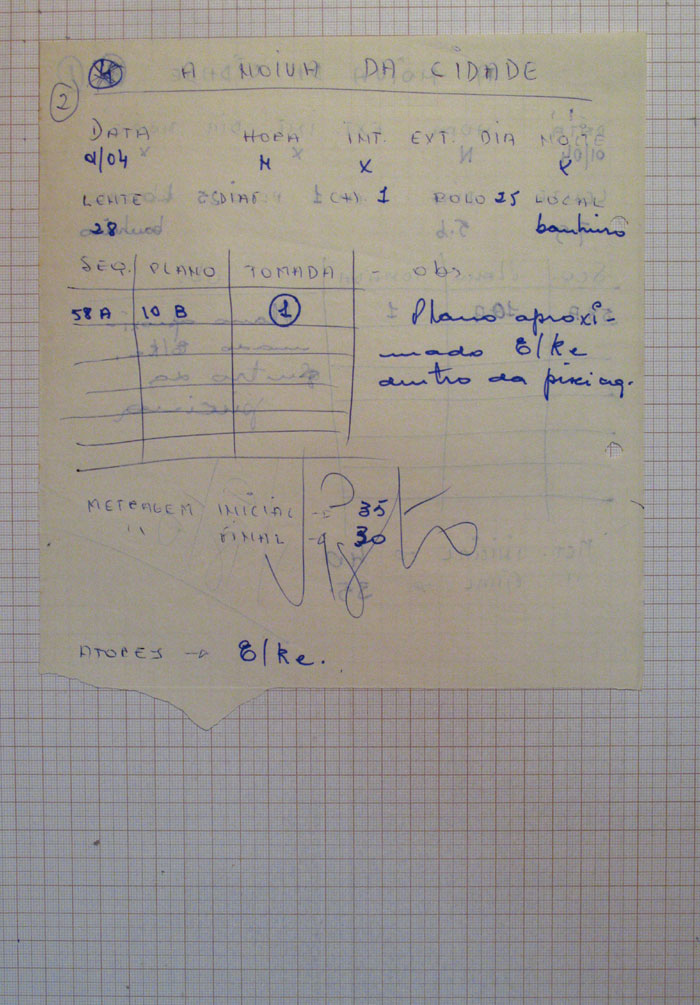 A NOIVA DA CIDADE
2
DATA HORA INT. EXT. DIA NOITE
01/04 N X X
LENTE DIAF 1 CHA 1 ROLO 25 LOCAL
28 banheiro
SEQ. PLANO TOMADA - obs
58A 10 B 1 Plano aproxi-
mado Elke
dentro da piscina.
METRAGEM INICIAL → 35
" FINAL → 30
ATORES → Elke.